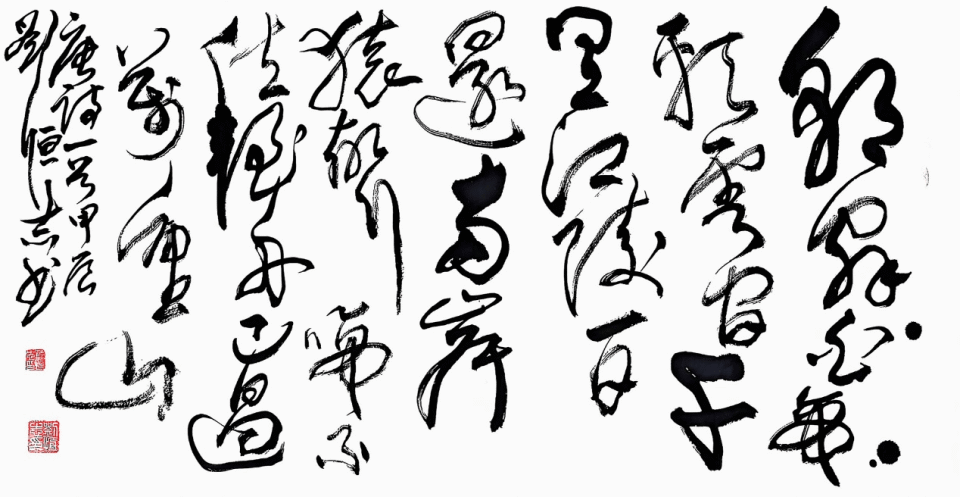 朝辭白帝
彩雲間千
里江陵一日
還兩岸
猿聲啼不
住輕舟已過
萬重山
唐詩一首甲辰
劉恒志书